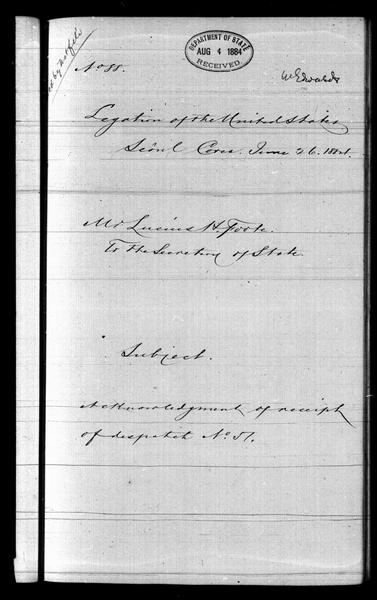 DEPARTMENT OF STATE
AUG 4 1884
RECEIVED
No 88.
Legation of the United States
Seoul Corea. June 26. 1884.
Mr Lucius H. Foote.
To the Secretary of State.
Subject.
Acknowledgment of receipt
of despatch No. 51.